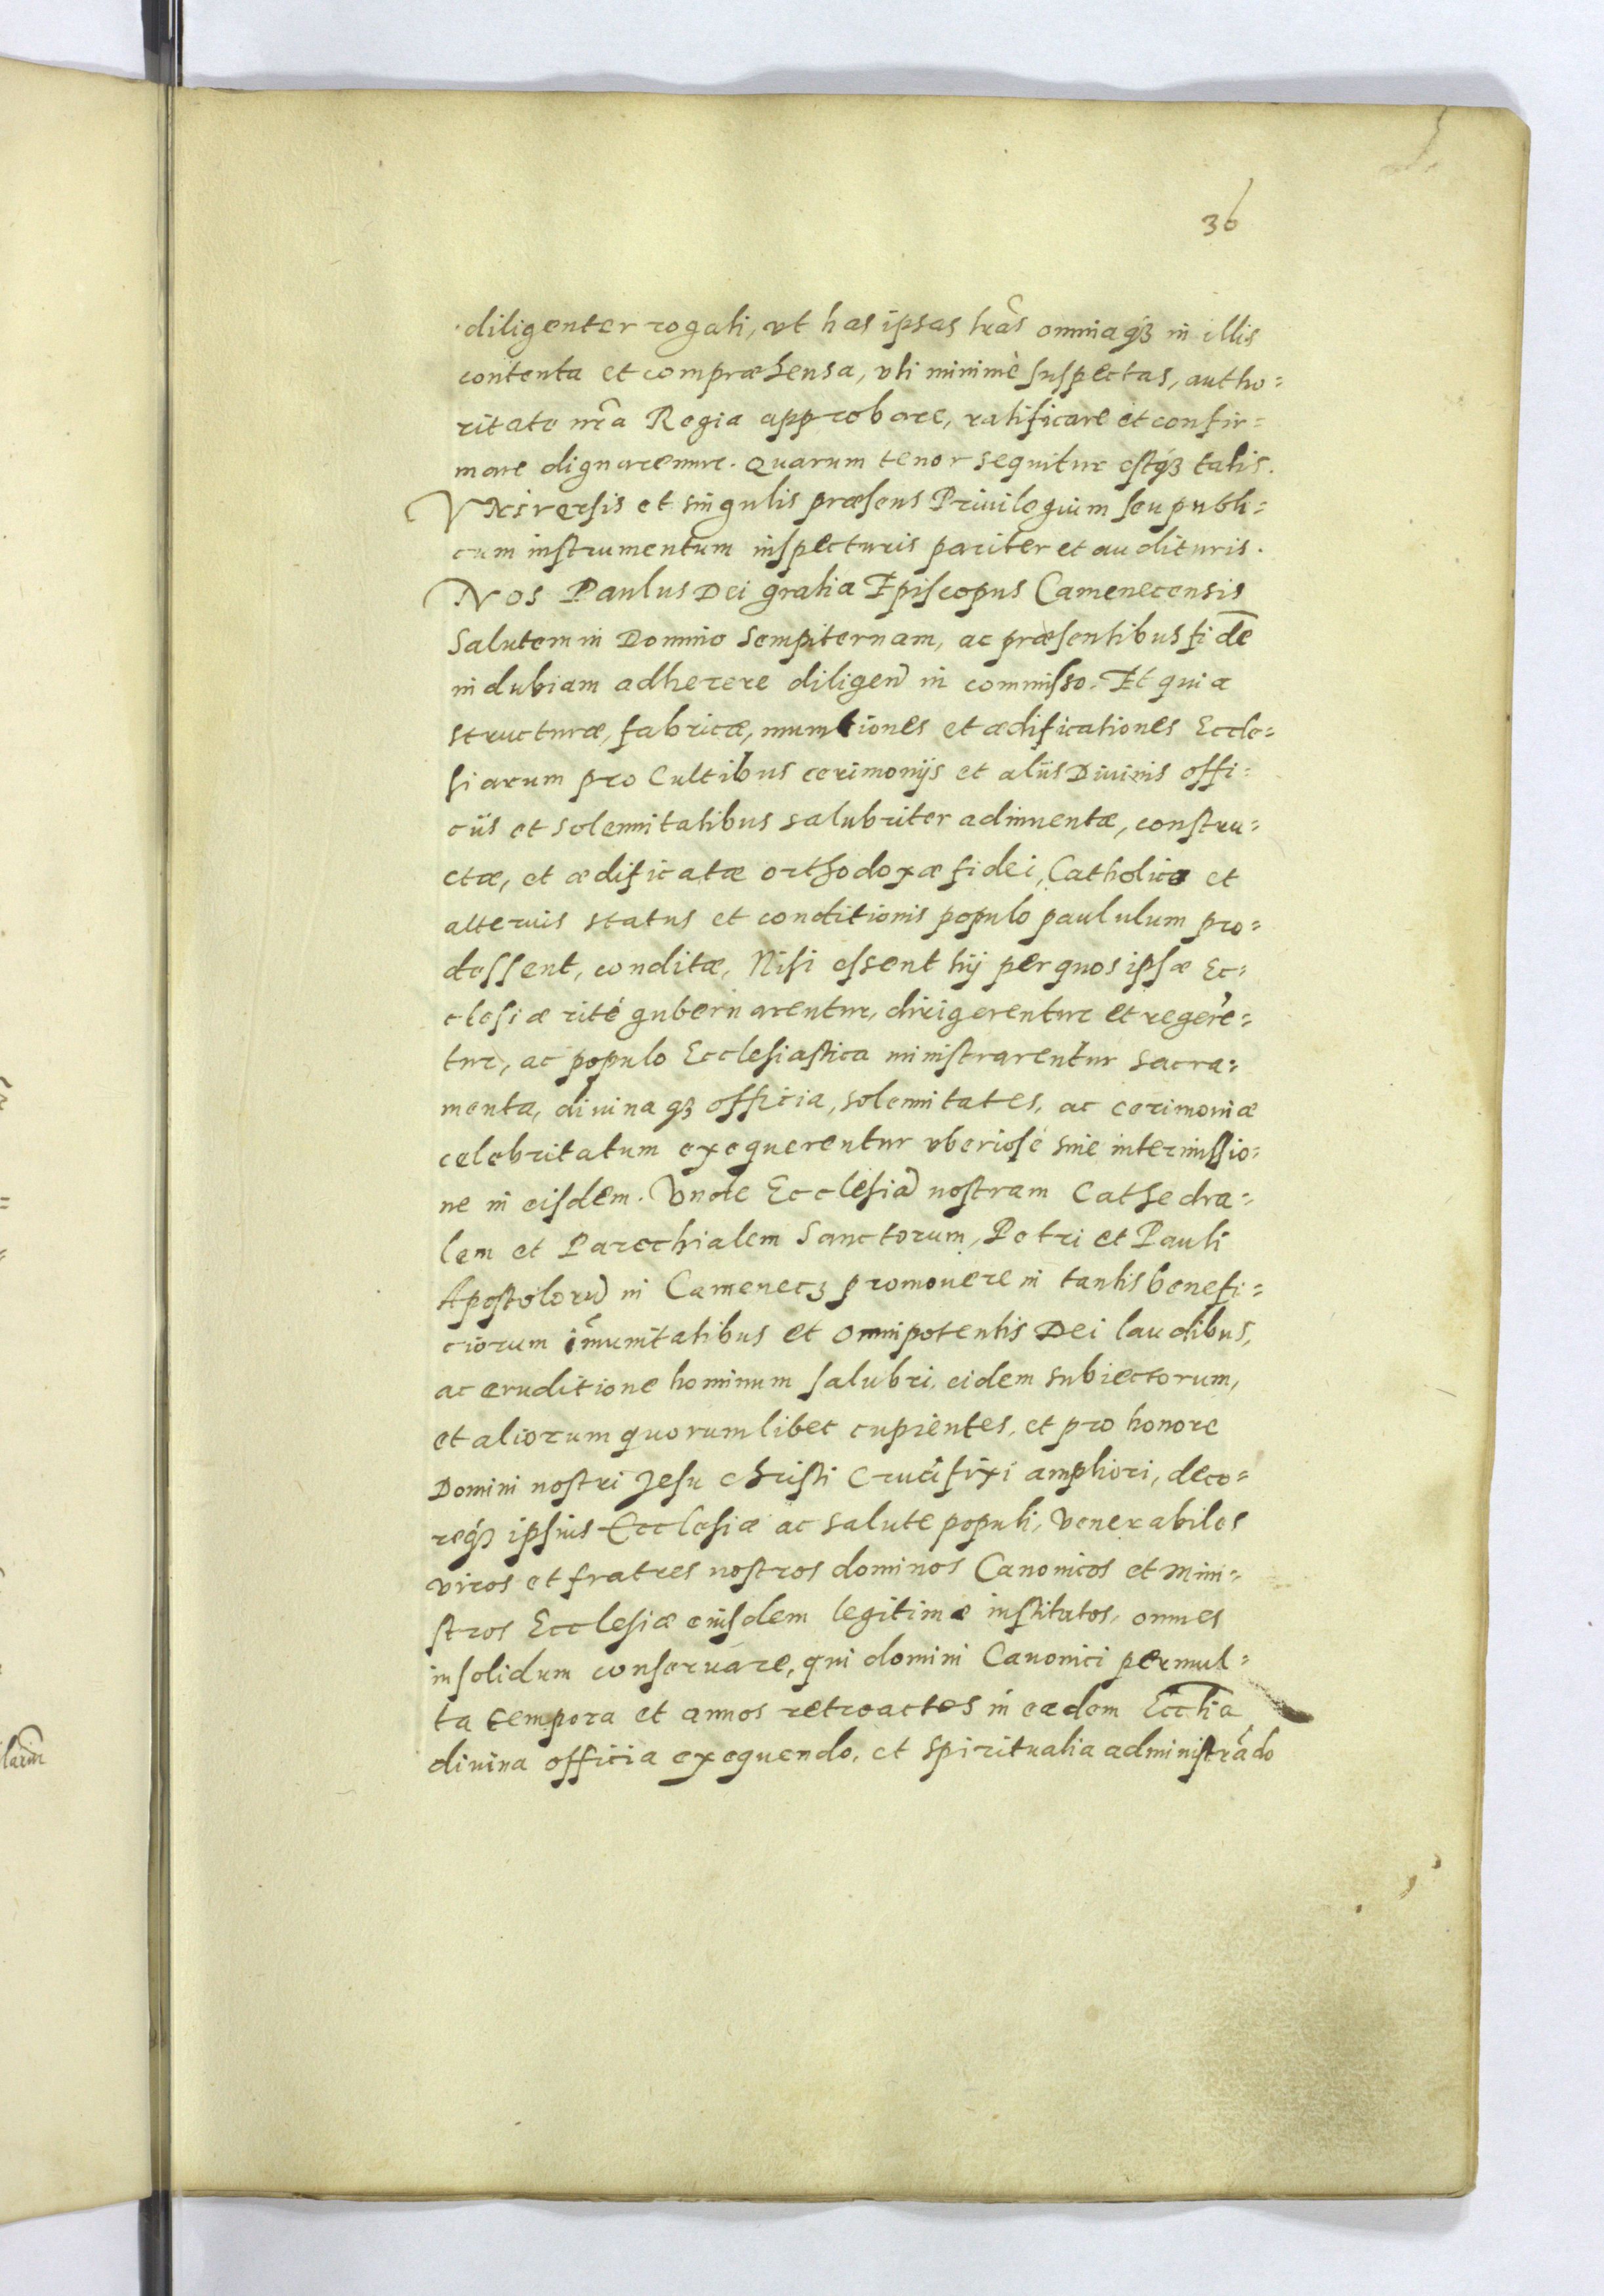 36
diligenter rogati, vt has ipsas lrãs omniaqꝫ in illis
contenta et compræhensa, vti minimè suspectas, autho=
ritate nrã Regia approbare, ratificare et confir=
mare dignaremur. Quarum tenor sequitur estqꝫ talis.
Vniversis et singulis præsens Priuilegium seu publi=
cum instrumentum inspecturis pariter et audituris.
Nos Paulus Dei gratia Episcopus Camenecensis
Salutem in Domino Sempiternam, ac præsentibus fidē
indubiam adherere diligen̄ in commisso. Et quia
structuræ, fabricæ, munitiones et ædificationes Eccle=
siarum pro Cultibus cerimonijs et alijs Diuinis offi=
cijs et solennitatibus salubriter adinuentæ, constru=
ctæ, et ædificatæ orthodoxæ fidei, Catholicæ et
alterius status et conditionis populo paululum pro=
dessent, conditæ, Nisi essent hij per quos ipsæ Ec=
clesiæ rité gubernarentur, dirigerentur et regerē=
tur, ac populo Ecclesiastica ministrarentur sacra=
menta, diuinaqꝫ officia, solennitates, ac cerimoniæ
celebritatum exequerentur vberiosé sine intermissio=
ne in eisdem. Vnde Ecclesiā nostram Cathedra=
lem et Parochialem Sanctorum, Petri et Pauli
Apostolorū in Camenecz promouere in tantis benefi=
ciorum im̃unitatibus et omnipotentis Dei laudibus,
ac eruditione hominum salubri, eidem subiectorum,
et aliorum quorumlibet cupientes, et pro honore
Domini nostri Jesu Christi Crucifixi ampliori, deco=
reqꝫ ipsius Ecclesiæ ac salute populi, Venerabiles
viros et fratres nostros dominos Canonicos et Mini=
stros Ecclesiæ eiusdem legitimæ institutos, omnes
insolidum conseruare, qui domini Canonici permul=
ta tempora et annos retroactos in eadem Eccl̄ia
diuina officia exequendo, et spiritualia administrādo